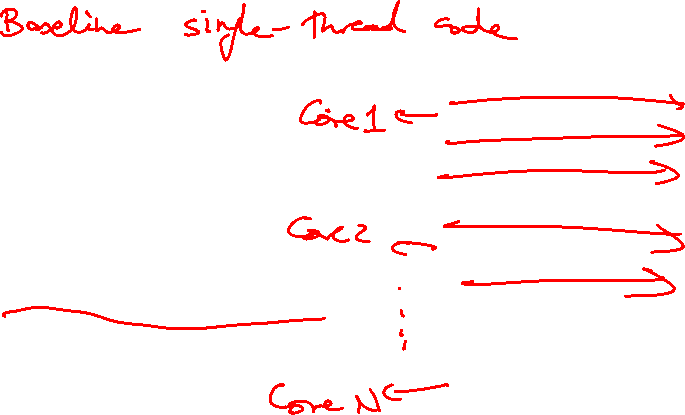 Baseline single-thread code
Core 1
Core 2
Core N